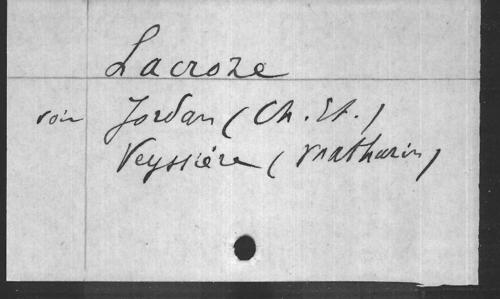 Lacroze
voir Jordan (Ch. Et.)
Veyssière (Mathurin)